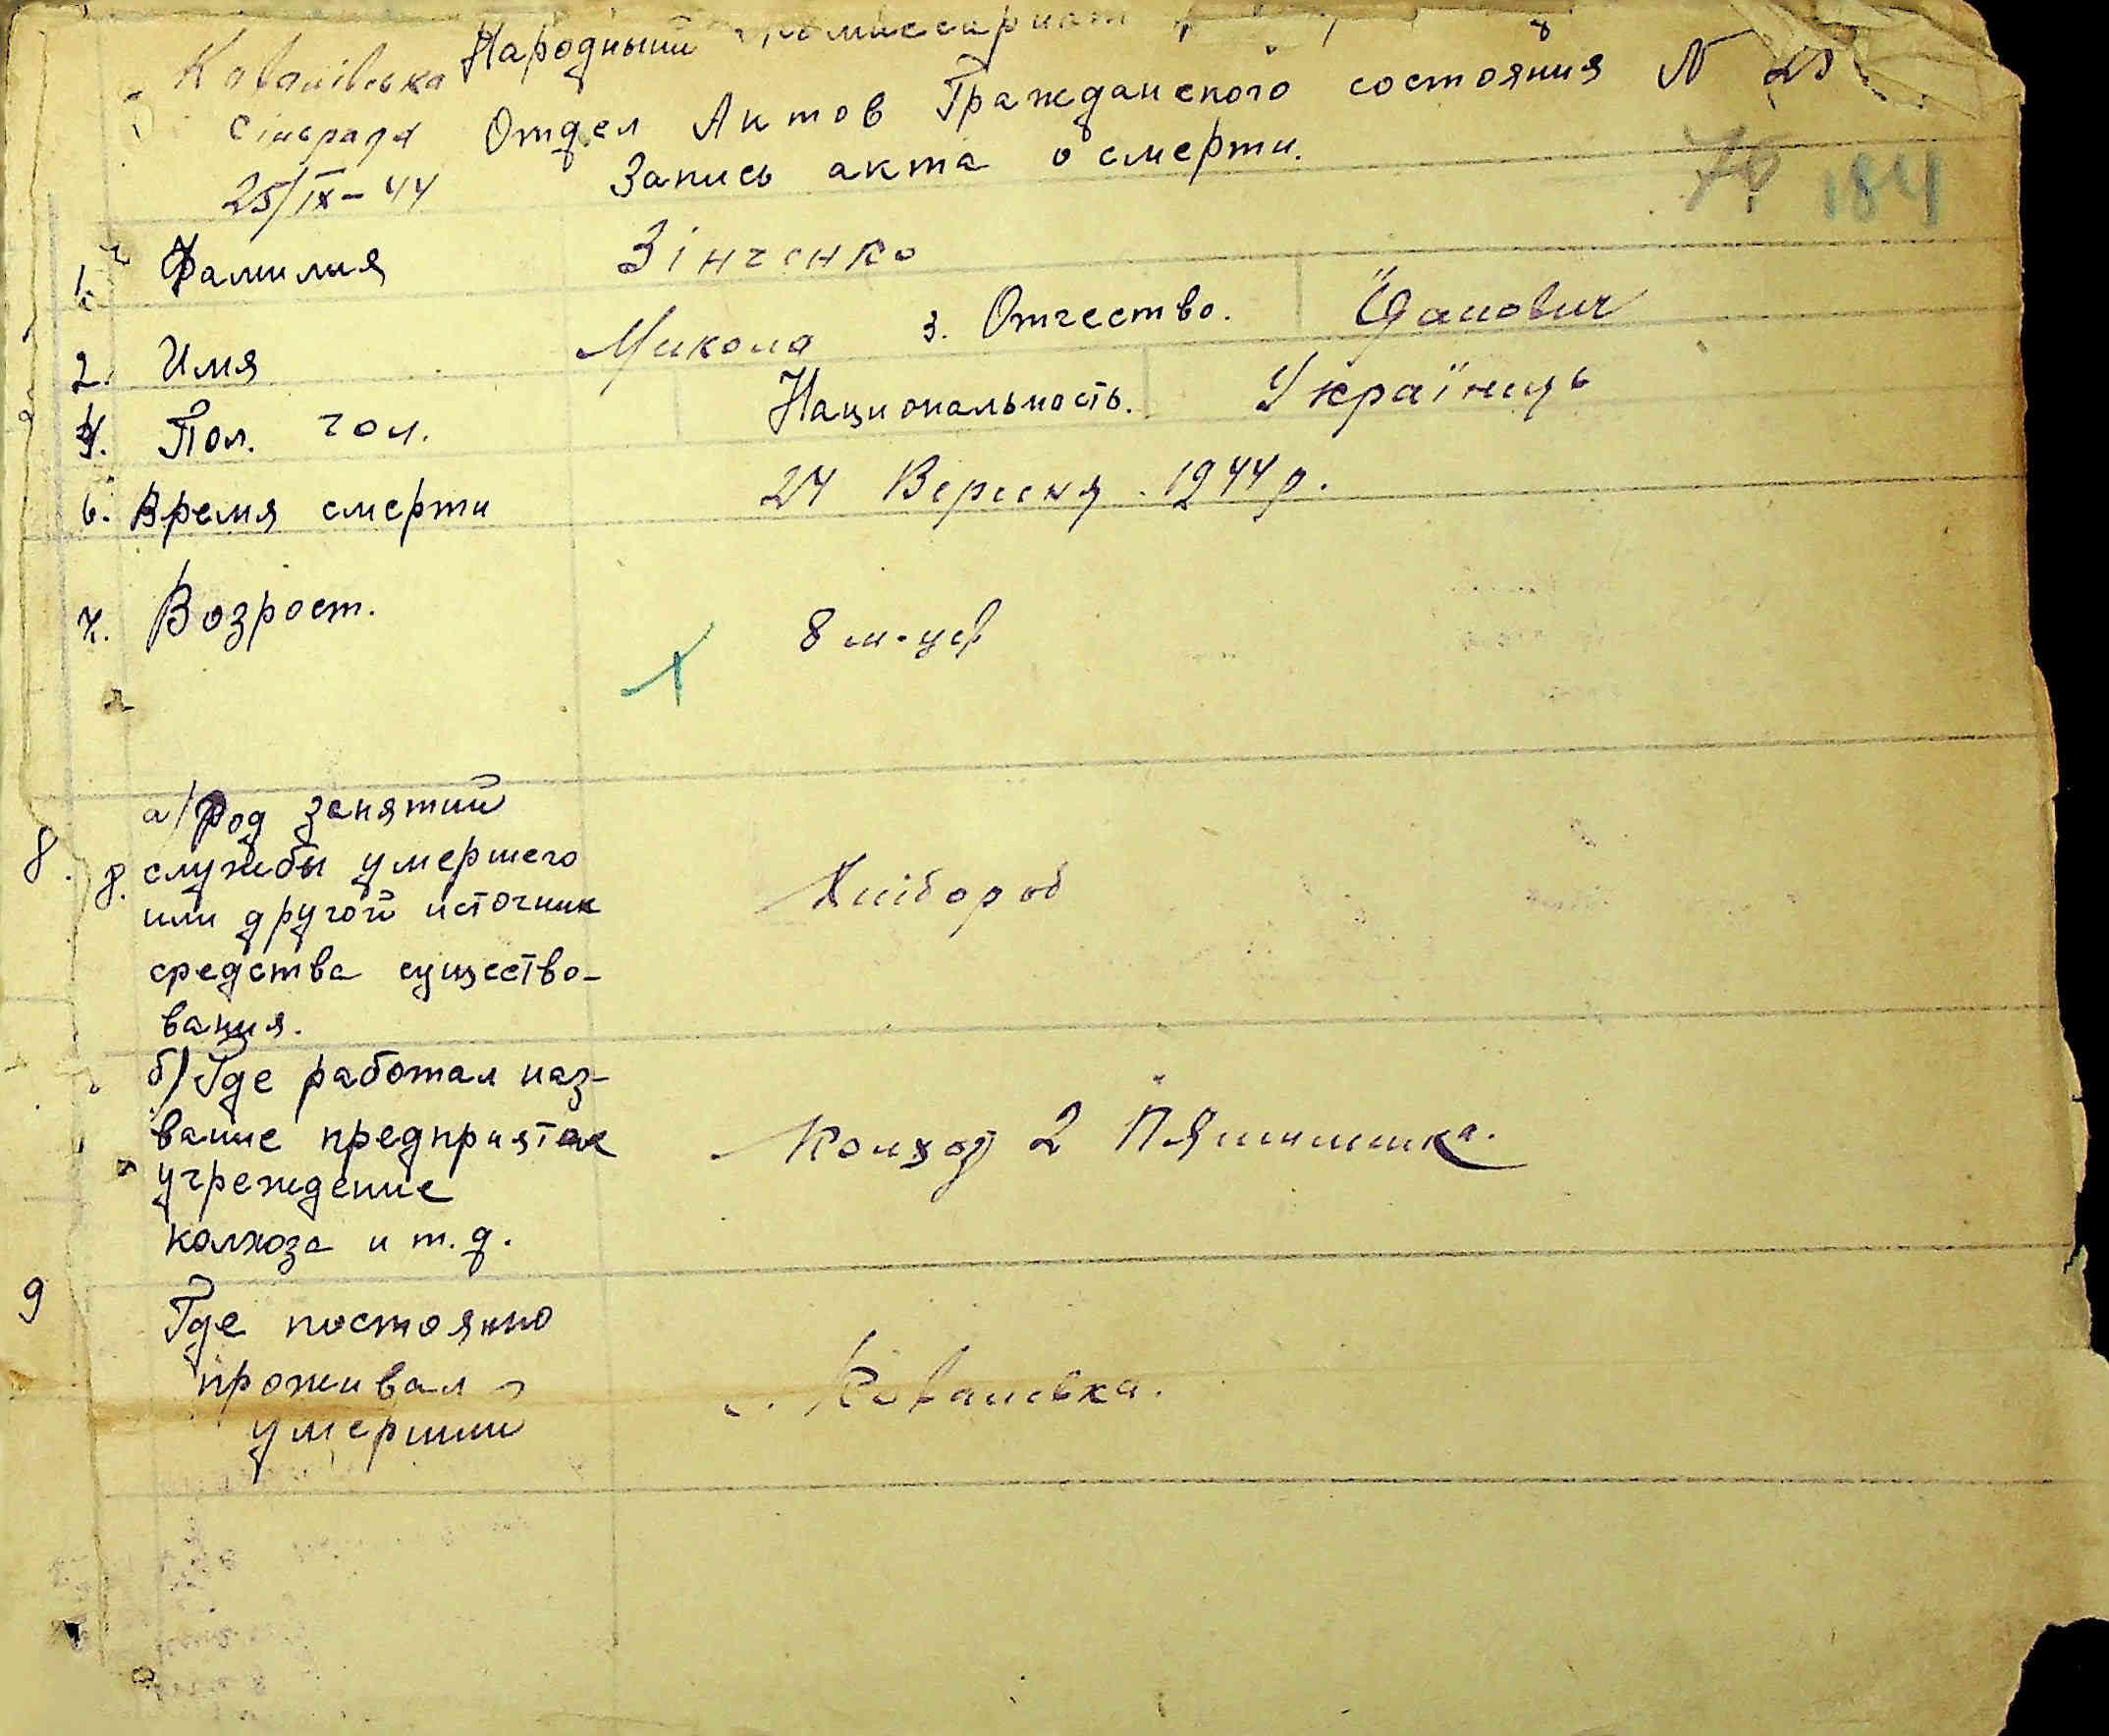 Народный комиссариат
Ковалівська
сільрада
25/IX-44
Отдел Актов Гражданского состояния N
Запись акта о смерти.
184
1. Фамилия Зінченко
2. Имя Микола 3. Отчество.
4. Пол. чол. Национальность. Україниць
6. Время смерти 24 Вересня 1944 р.
7. Возрост. 8 м-ців
8. а/ Род занятий
службы умершего
или другой источник
средства существо-
вания.
Хлібороб
б) Где работал наз-
вание предприятие
учреждение
колхоза и т.д.
Колхоз 2 Пятилетка.
9 Где постоянно
проживал
умерший
с. Ковалевка.